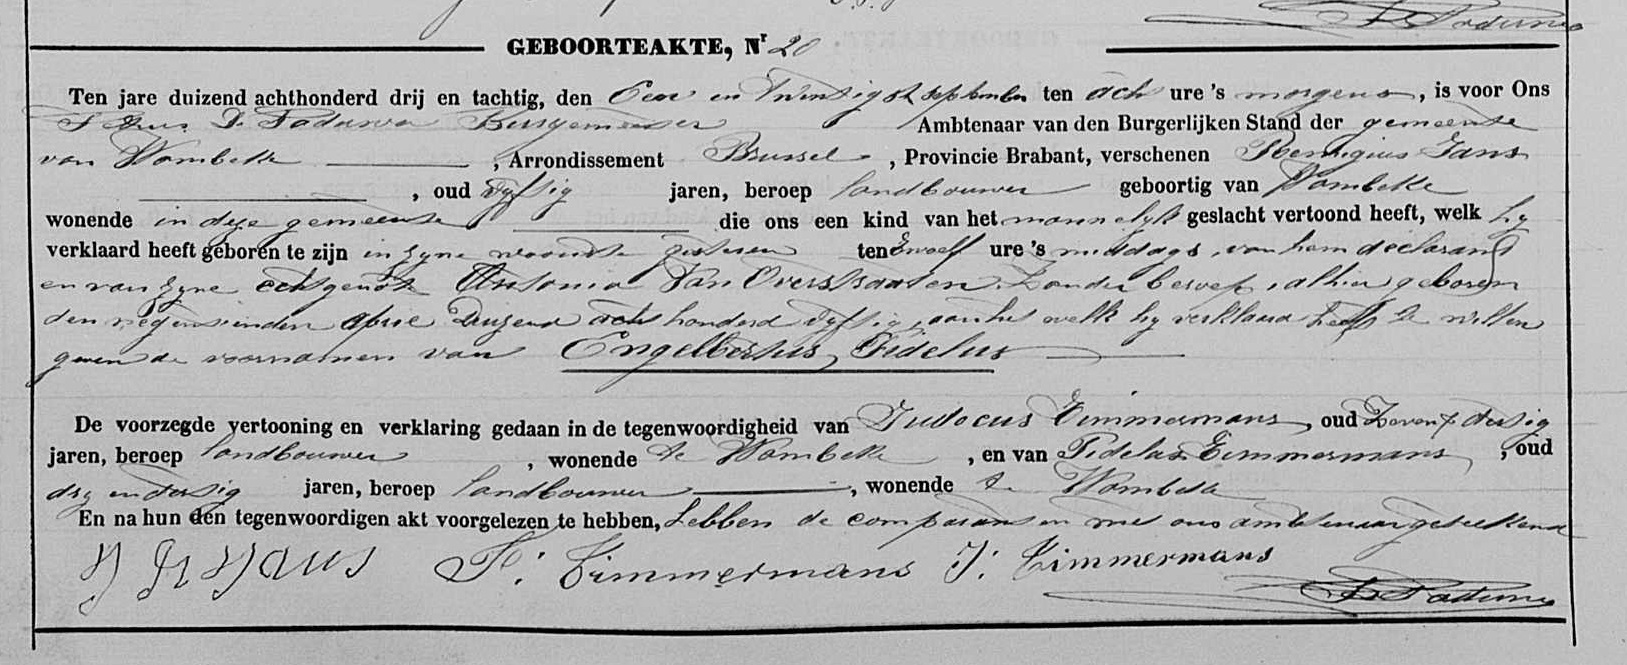 De Padurwa
GEBOORTEAKTE, Nr 20
Ten jare duizend achthonderd drij en tachtig, den Een en Twintigst september ten acht ure 's morgens, is voor Ons
Petrus De Padurwa Burgemeester Ambtenaar van den Burgerlijken Stand der gemeente
van Wambeke, Arrondissement Brussel, Provincie Brabant, verschenen Remigius Jans
, oud vyftig jaren, beroep landbouwer geboortig van Wambeke
wonende in deze gemeente die ons een kind van het mannelyk geslacht vertoond heeft, welk hy
verklaard heeft geboren te zijn in zyne woonste gisteren ten twaelf ure 's middags, van hem declarant
en van zyne echtgenote Antonia Van Overstraeten Zonder beroep, alhier geboren
den negensten april Duizend acht honderd vyftig, aan het welk hy verklaard heeft te willen
geven de voornamen van Engelbertus, Fidelus
De voorzegde vertooning en verklaring gedaan in de tegenwoordigheid van Judocus Timmermans, oud Zeven & dertig
jaren, beroep landbouwer, wonende te Wambeke, en van Fidelus Timmermans, oud
dry en dertig jaren, beroep landbouwer, wonende te Wambeke
En na hun den tegenwoordigen akt voorgelezen te hebben, hebben de comparanten met ons ambtenaar geteekend
Jans F. Timmermans J. Timmermans
De Padurwa